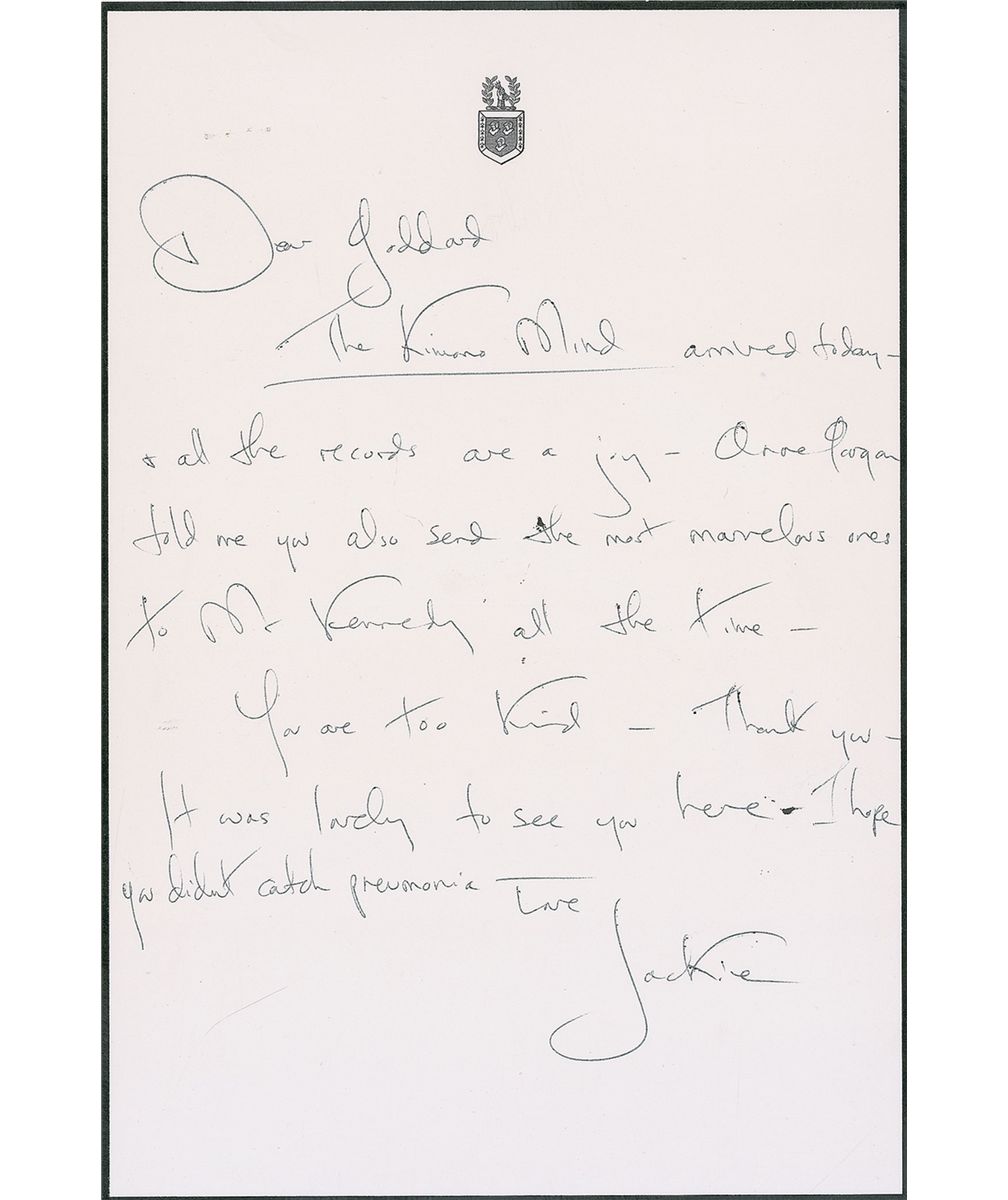 Dear Goddard
The Kimono Mind arrived today –
& all the records are a joy – Anne
told me you also send the most marvelous ones
to Mr Kennedy all the time –
You are too kind – Thank you –
It was lovely to see you here – I hope
you didnt catch pneumonia –
Love
Jackie